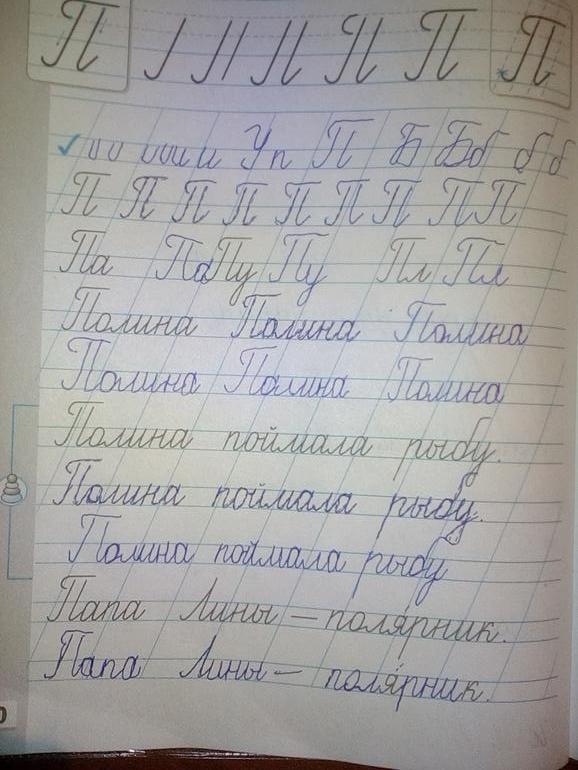 П П П
оо оои и Уп П Б Бб б б
П П П П П П П П П
Па Па Пу Пу Пл Пл
Полина Полина Полина
Полина Полина Полина
Полина поймала рыбу.
Полина поймала рыбу.
Полина поймала рыбу
Папа Лины – поля́рник.
Папа Лины – поля́рник.